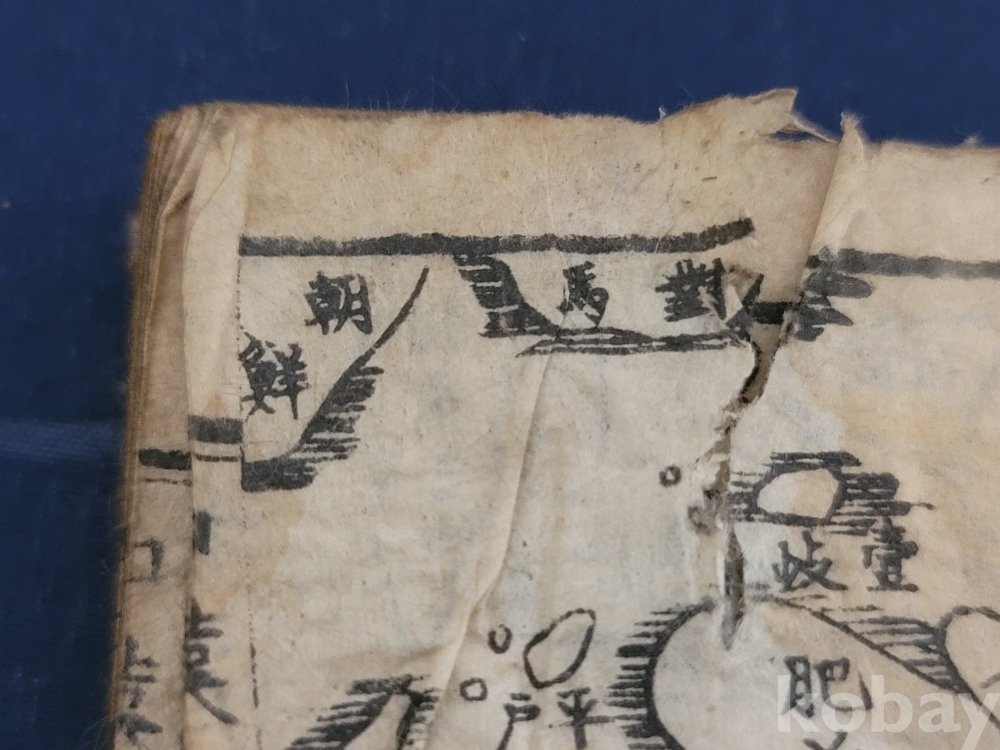 朝
鮮
對馬
壹岐
平戸
肥
kobay